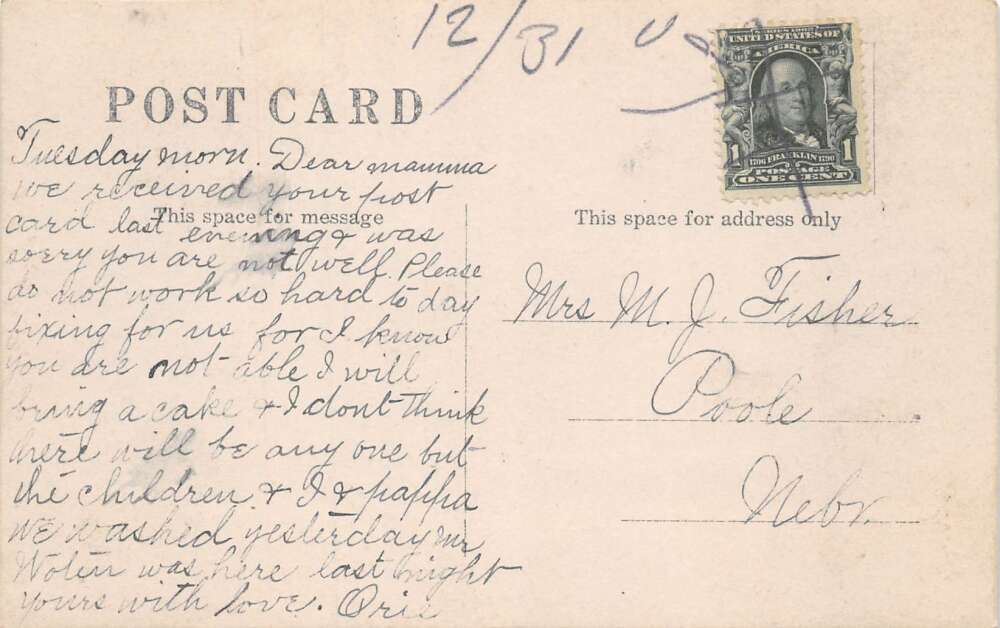 12/31
SERIES 1902
UNITED STATES OF
AMERICA
1706 FRANKLIN 1790
1 POSTAGE 1
ONE CENT
POST CARD
Tuesday morn. Dear mamma
we received your post
This space for message
card last evening & was
sorry you are not well. Please
do not work so hard to day
fixing for us for I know
you are not able I will
bring a cake & I dont think
there will be any one but
the children & I & pappa
we washed yesterday Mr
was here last night
yours with love. Orie
This space for address only
Mrs M. J. Fisher
Poole
Nebr.